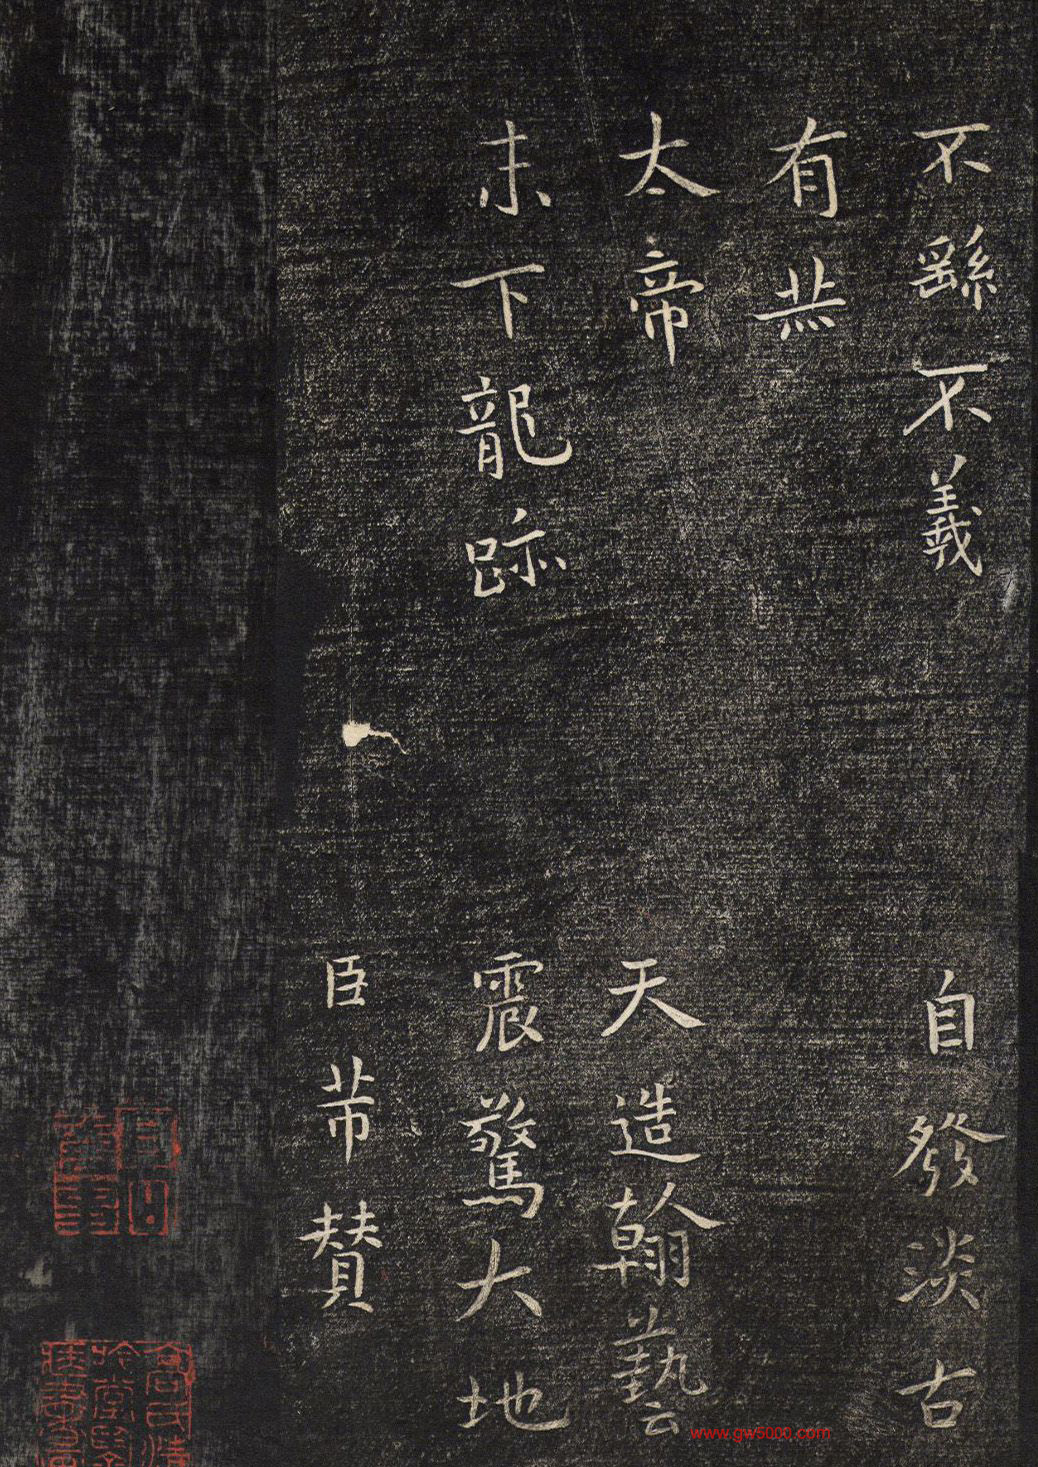 不繇不羲 自發淡古
有
太帝 天造翰藝
末下龍跡 震驚大地
臣芾贊
www.gw5000.com